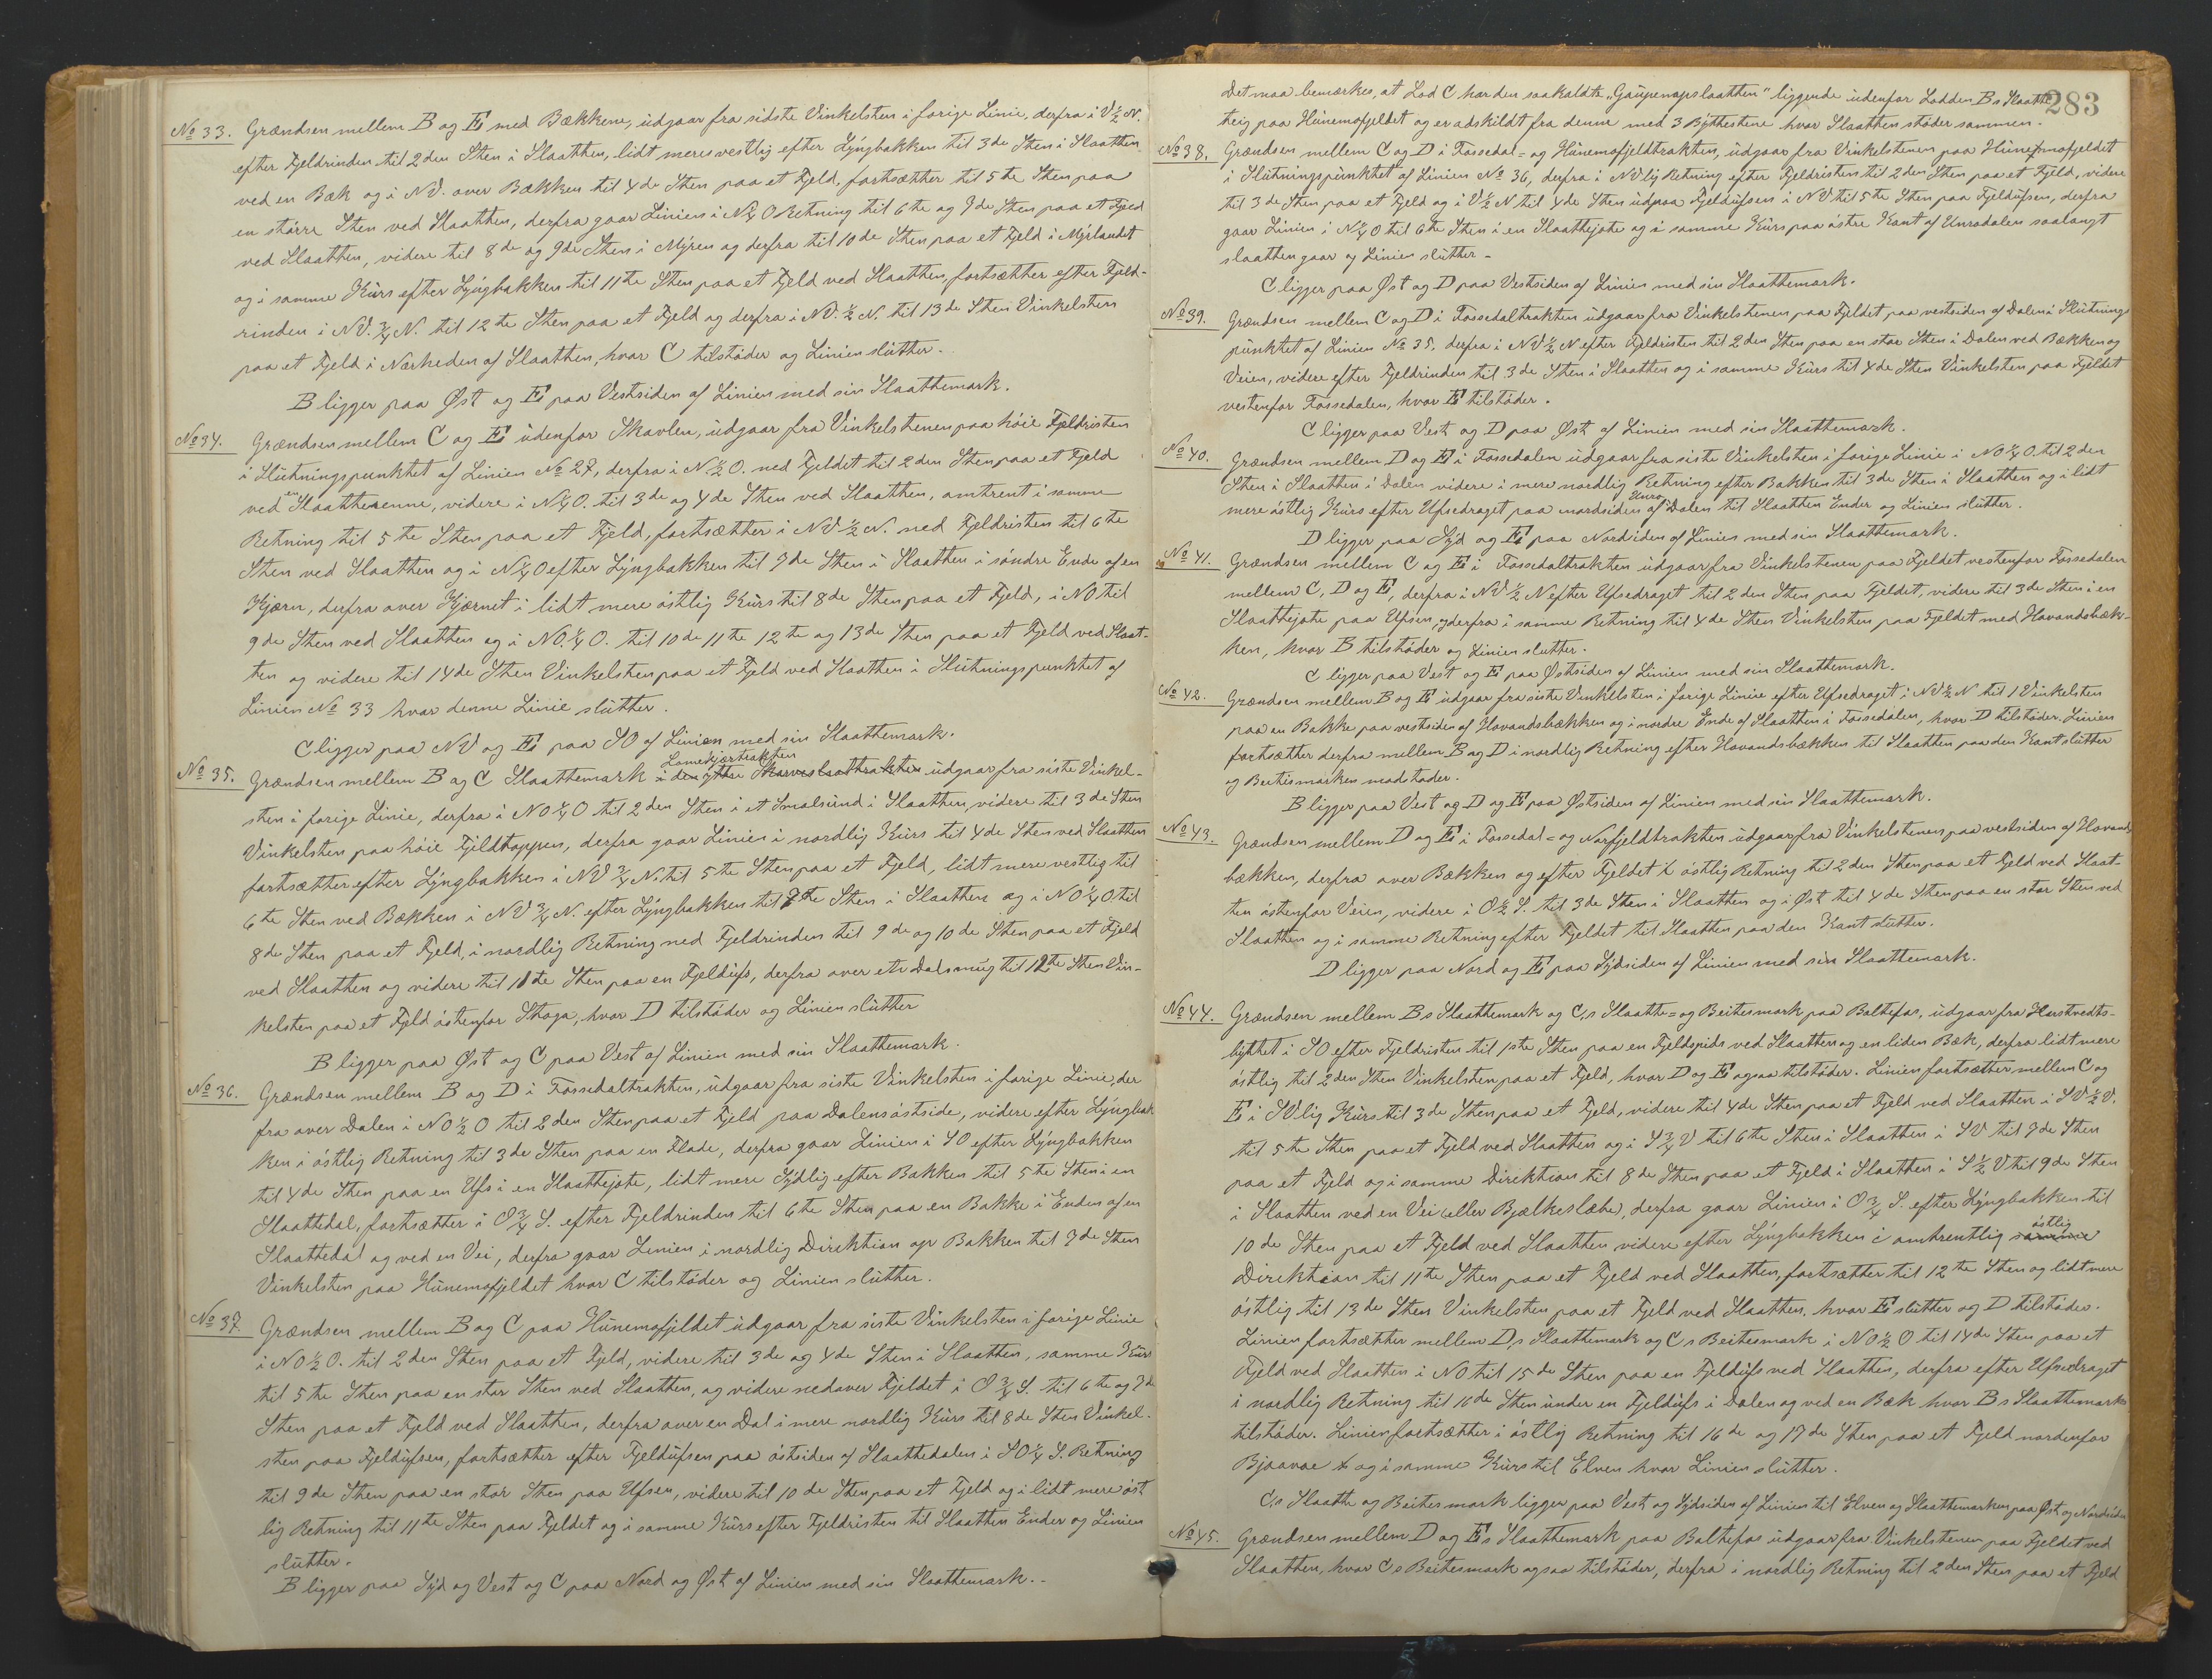 No 33. Grændsen mellem B og E med Bækkene, udgaar fra sidste Vinkelsten i forige Linie, derfra i V½N.
efter Fjeldrinden til 2den Sten i Slaatten, lidt mere vestlig efter Lyngbakken til 3de Sten i Slaatten
ved en Bæk og i NV. over Bækken til 4de Sten paa et Fjeld, fortsætter til 5te Sten paa
en större Sten ved Slaatten, derfra gaar Linien i N¼O Retning til 6te og 7de Sten paa et Fjeld
ved Slaatten, videre til 8de og 9de Sten i Myren og derfra til 10de Sten paa et Fjeld i Myrlandet
og i samme Kurs efter Lyngbakken til 11te Sten paa et Fjeld ved Slaatten, fortsætter efter Fjeld-
rinden i NV.¾N. til 12te Sten paa et Fjeld og derfra i NV.½N. til 13de Sten Vinkelsten
paa et Fjeld i Nærheden af Slaatten, hvor C tilstöder og Linien slutter.
B ligger paa Øst og E paa Vestsiden af Linien med sin Slaattemark.
No 34. Grændsen mellem C og E udenfor Skavlen, udgaar fra Vinkelstenen paa höie Fjeldristen
i Slutningspunktet af Linien No 27, derfra i N½O. ned Fjeldet til 2den Sten paa et Fjeld
ved en Slaatterenne, videre i N¼O. til 3de og 4de Sten ved Slaatten, omtrent i samme
Retning til 5te Sten paa et Fjeld, fortsætter i NV½N. ned Fjeldristen til 6te
Sten ved Slaatten og i N¼O efter Lyngbakken til 7de Sten i Slaatten i söndre Ende af en
Kjærn, derfra over Kjærnet i lidt mere östlig Kurs til 8de Sten paa et Fjeld, i NO til
9de Sten ved Slaatten og i NO.¼O. til 10de 11te 12te og 13de Sten paa et Fjeld ved Slaat-
ten og videre til 14de Sten Vinkelsten paa et Fjeld ved Slaatten i Slutningspunktet af
Linien No 33 hvor denne Linie slutter.
C ligger paa NV og E paa SO af Linien med sin Slaattemark.
Lomekjærtrakten
No 35. Grændsen mellem B og C Slaattemark i den yttre Skarveslaattrakten udgaar fra siste Vinkel-
sten i forige Linie, derfra i NO¼O til 2den Sten i et Smalsund i Slaatten, videre til 3de Sten
Vinkelsten paa höie Fjeldtoppen, derfra gaar Linien i nordlig Kurs til 4de Sten ved Slaatten
fortsætter efter Lyngbakken i NV¾N. til 5te Sten paa et Fjeld, lidt mere vestlig til
6te Sten ved Bækken i NV¾N. efter Lyngbakken til 7de Sten i Slaatten og i NO¼O til
8de Sten paa et Fjeld, i nordlig Retning ned Fjeldrinden til 9de og 10de Sten paa et Fjeld
ved Slaatten og videre til 11te Sten paa en Fjeldufs, derfra over et Dalsmug til 12te Sten Vin-
kelsten paa et Fjeld östenfor Skoga, hvor D tilstöder og Linien slutter
B ligger paa Øst og C paa Vest af Linien med sin Slaattemark.
No 36. Grændsen mellem B og D i Fossedaltrakten, udgaar fra siste Vinkelsten i forige Linie, der
fra over Dalen i NO½O til 2den Sten paa et Fjeld paa Dalens östside, videre efter Lyngbak
ken i östlig Retning til 3de Sten paa en Flade, derfra gaar Linien i SO efter Lyngbakken
til 4de Sten paa en Ufs i en Slaattejote, lidt mere Sydlig efter Bakken til 5te Sten i en
Slaattedal, fortsætter i O¾S. efter Fjeldrinden til 6te Sten paa en Bakke i Enden af en
Slaattedal og ved en Vei, derfra gaar Linien i nordlig Direktion op Bakken til 7de Sten
Vinkelsten paa Hunemofjeldet hvor C tilstöder og Linien slutter.
No 37. Grændsen mellem B og C paa Hunemofjeldet udgaar fra siste Vinkelsten i forige Linie
i NO½O. til 2den Sten paa et Fjeld, videre til 3de og 4de Sten i Slaatten, samme Kurs
til 5te Sten paa en stor Sten ved Slaatten, og videre nedover Fjeldet i O¾S. til 6te og 7de
Sten paa et Fjeld ved Slaatten, derfra over en Dal i mere nordlig Kurs til 8de Sten Vinkel-
sten paa Fjeldufsen, fortsætter efter Fjeldufsen paa östsiden af Slaattedalen i SO¼S. Retning
til 9de Sten paa en stor Sten paa Ufsen, videre til 10de Sten paa et Fjeld og i lidt mere öst
lig Retning til 11te Sten paa Fjeldet og i samme Kurs efter Fjeldristen til Slaatten Ender og Linien
slutter.
B ligger paa Syd og Vest og C paa Nord og Øst af Linien med sin Slaattemark.
283
Det maa bemærkes, at Lod C har den saakaldte "Gaupenapslaatten" liggende udenfor Lodden Bs Slaatte
teig paa Hunemofjeldet og er adskildt fra denne med 3 Byttestene hvor Slaatten stöder sammen.
No 38. Grændsen mellem C og D i Fossedal- og Hunemofjeldtrakten, udgaar fra Vinkelstenen paa Hunemofjeldet
i Slutningspunktet af Linien No 36, derfra i NVlig Retning efter Fjeldristen til 2den Sten paa et Fjeld, videre
til 3de Sten paa et Fjeld og i V½N til 4de Sten udpaa Fjeldufsen i NV til 5te Sten paa Fjeldufsen, derfra
gaar Linien i N¼O til 6te Sten i en Slaattejote og i samme Kurs paa östre Kant af Unrodalen saalangt
slaatten gaar og Linien slutter.
C ligger paa Øst og D paa Vestsiden af Linien med sin Slaattemark.
No 39. Grændsen mellem C og D i Fossedaltrakten udgaar fra Vinkelstenen paa Fjeldet paa vestsiden af Dalen i Slutnings
punktet af Linien No 35, derfra i NV½N efter Fjeldristen til 2den Sten paa en stor Sten i Dalen ved Bækken og
Veien, videre efter Fjeldrinden til 3de Sten i Slaatten og i samme Kurs til 4de Sten Vinkelsten paa Fjeldet
vestenfor Fossedalen, hvor E tilstöder.
C ligger paa Vest og D paa Øst af Linien med sin Slaattemark.
No 40. Grændsen mellem D og E i Fossedalen udgaar fra siste Vinkelsten i forige Linie i NO¼O. til 2den
Sten i Slaatten i Dalen videre i mere nordlig Retning efter Bakken til 3de Sten i Slaatten og i lidt
mere östlig Kurs efter Ufsedraget paa nordsiden af Unro Dalen til Slaatten Ender og Linien slutter.
D ligger paa Syd og E paa Nordsiden af Linien med sin Slaattemark.
No 41. Grændsen mellem C og E i Fossedaltrakten udgaar fra Vinkelstenen paa Fjeldet vestenfor Fossedalen
mellem C, D og E, derfra i NV½N efter Ufsedraget til 2den Sten paa Fjeldet, videre til 3de Sten i en
Slaattejote paa Ufsen, og derfra i samme Retning til 4de Sten Vinkelsten paa Fjeldet med Hovandsbæk-
ken, hvor B tilstöder og Linien slutter.
C ligger paa Vest og E paa Østsiden af Linien med sin Slaattemark.
No 42. Grændsen mellem B og E udgaar fra siste Vinkelsten i forige Linie efter Ufsedraget i NV½N til 1 Vinkelsten
paa en Bakke paa vestsiden af Hovandsbækken og i nordre Ende af Slaatten i Fossedalen, hvor D tilstöder. Linien
fortsætter derfra mellem B og D i nordlig Retning efter Hovandsbækken til Slaatten paa den Kant slutter
og Beitesmarken modstöder.
B ligger paa Vest og D og E paa Østsiden af Linien med sin Slaattemark.
No 43. Grændsen mellem D og E i Fossedal- og Norfjeldtrakten udgaar fra Vinkelstenen paa vestsiden af Hovands
bækken, derfra over Bækken og efter Fjeldet i östlig Retning til 2den Sten paa et Fjeld ved Slaat-
ten östenfor Veien, videre i O½S. til 3de Sten i Slaatten og i Øst til 4de Sten paa en stor Sten ved
Slaatten og i samme Retning efter Fjeldet til Slaatten paa den Kant slutter.
D ligger paa Nord og E paa Sydsiden af Linien med sin Slaattemark.
No 44. Grændsen mellem Bs Slaattemark og C,s Slaatte- og Beitesmark paa Boltefos, udgaar fra Harstvedts-
byttet i SO efter Fjeldristen til 1ste Sten paa en Fjeldspids ved Slaatten og en liden Bæk, derfra lidt mere
östlig til 2den Sten Vinkelsten paa et Fjeld, hvor D og E ogsaa tilstöder. Linien fortsætter mellem C og
E i SVlig Kurs til 3de Sten paa et Fjeld, videre til 4de Sten paa et Fjeld ved Slaatten i SV½V.
til 5te Sten paa et Fjeld ved Slaatten og i S¾V til 6te Sten i Slaatten i SV til 7de Sten
paa et Fjeld og i samme Direktion til 8de Sten paa et Fjeld i Slaatten i S½V til 9de Sten
i Slaatten ved en Vei (eller Bjælkeslæbe), derfra gaar Linien i O¾S. efter Lyngbakken til
10de Sten paa et Fjeld ved Slaatten videre efter Lyngbakken i omtrentlig samme östlig
Direktion til 11te Sten paa et Fjeld ved Slaatten, fortsætter til 12te Sten og lidt mere
östlig til 13de Sten Vinkelsten paa et Fjeld ved Slaatten, hvor E slutter og D tilstöder.
Linien fortsætter mellem D,s Slaattemark og C,s Beitesmark i NO½O til 14de Sten paa et
Fjeld ved Slaatten i NO til 15de Sten paa en Fjeldufs ved Slaatten, derfra efter Ufsedraget
i nordlig Retning til 16de Sten under en Fjeldufs i Dalen og ved en Bæk hvor Bs Slaattemark
tilstöder. Linien fortsætter i östlig Retning til 16de og 17de Sten paa et Fjeld nordenfor
Bjaavae og i samme Kurs til Elven hvor Linien slutter.
C,s Slaatte og Beitesmark ligger paa Vest og Sydsiden af Linien til Elven og Slaattemarken paa Øst og Nordsiden
No 45. Grændsen mellem D og Es Slaattemark paa Boltefos udgaar fra Vinkelstenen paa Fjeldet ved
Slaatten, hvor Cs Beitesmark ogsaa tilstöder, derfra i nordlig Retning til 2den Sten paa et Fjeld